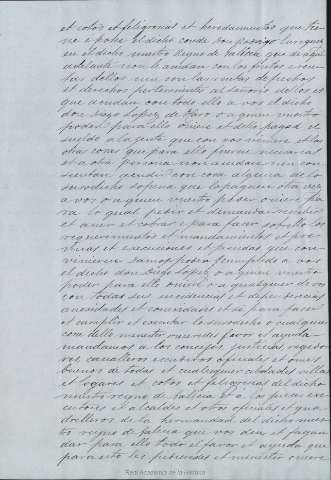 et cotos et feligresias et heredamientos que tiene
e posee el dicho conde don Rodrigo las quales
en el dicho nuestro Reyno de Galicia que de aqui
adelante non acudan con los frutos e rentas
dellos nin con las rentas de pechos
et derechos pertenescientes al señorio dellos es
que acudan con todo ello a vos el dicho
don Diego Lopez de Haro o a quien vuestro
poder para ello oviere et dello pagad el
sueldo a la gente que con vos
otras cosas que para ello fueren necesarias
et a otra persona non acudan nin consientan
acudir con cosa alguna de lo
susodicho sopena que lo paguen otra vez
a vos o a quien vuestro poder oviere para
lo qual pedir et demandar
et aver et cobrar e para facer sobrello los
requerimientos et
et execuciones et prendas que convinieren
damos poder cumplido a vos
el dicho don Diego Lopez o a quien vuestro
poder para ello oviere o a qualquier de vos
con todas sus incidencias et dependencias
anexidades et conexidades et si para facer
et cumplir et executar lo susodicho o qualquier
cosa dello menester ovieredes favor et ayuda
mandamos a los concejos justicias regidores
cavalleros escuderos oficiales et omes
buenos de todas et cualesquier cibdades villas
et logares et cotos et feligresias del dicho
nuestro reyno de Galicia et a los jueces executores
et alcaldes et otros oficiales et quadrilleros
de la hermandad del dicho nuestro
reyno de Galicia que vos den et fagan
dar para ello todo el favor et ayuda que
para esto les pidieredes et menester oviere
Real Academia de la Historia